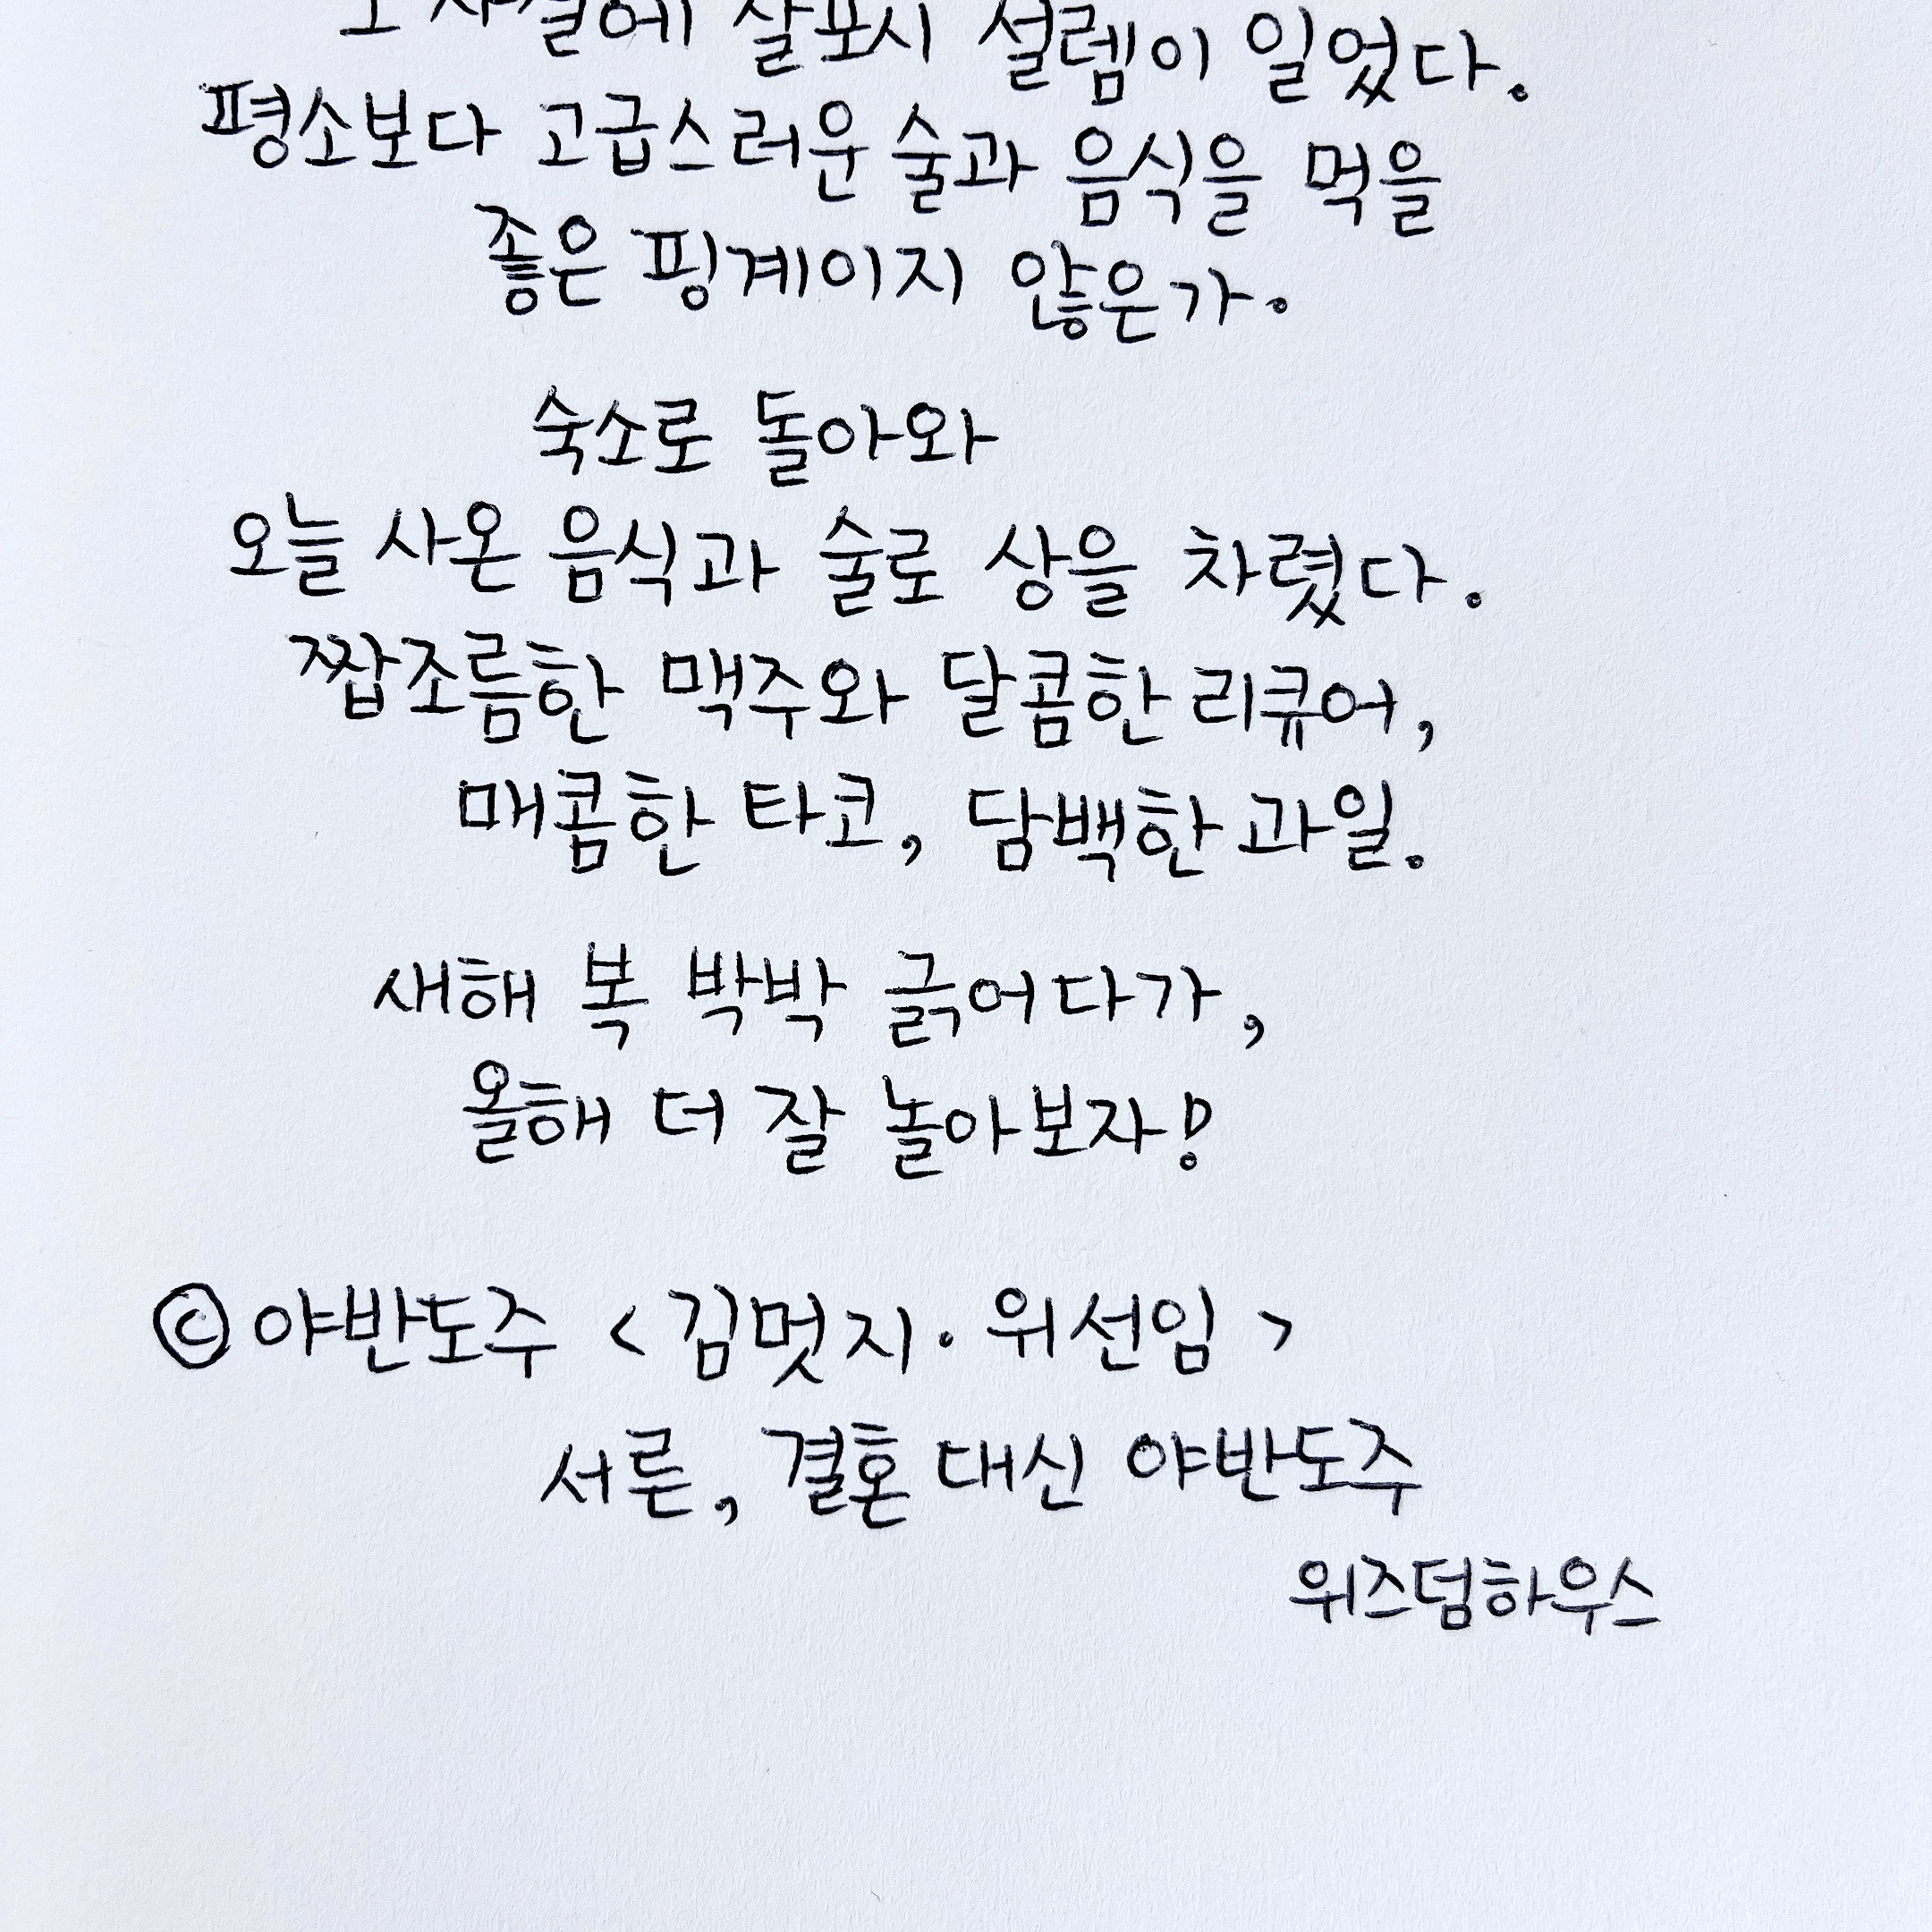 그 사실에 살포시 설렘이 일었다.
평소보다 고급스러운 술과 음식을 먹을
좋은 핑계이지 않은가.
숙소로 돌아와
오늘 사온 음식과 술로 상을 차렸다.
짭조름한 맥주와 달콤한 리큐어,
매콤한 타코, 담백한 과일.
새해 복 박박 긁어다가,
올해 더 잘 놀아보자!
© 야반도주 < 김멋지 · 위선임 >
서른, 결혼 대신 야반도주
위즈덤하우스